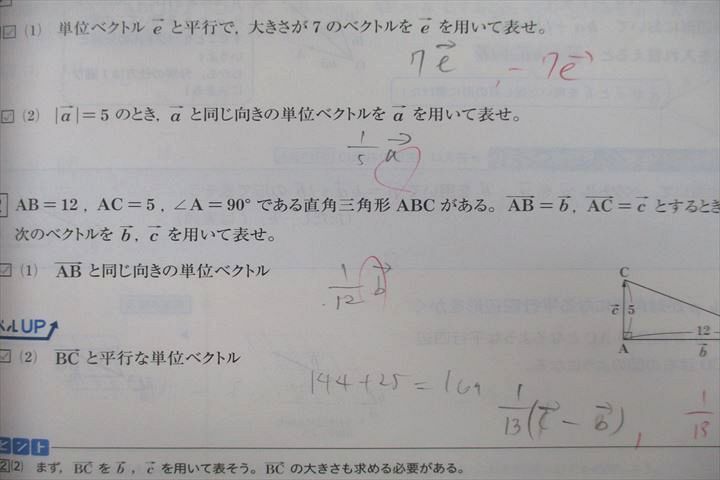 (1) 単位ベクトル e→ と平行で,大きさが7のベクトルを e→ を用いて表せ。
7e→ , −7e→
(2) |a→|=5 のとき, a→ と同じ向きの単位ベクトルを a→ を用いて表せ。
1/5 a→
AB=12, AC=5, ∠A=90° である直角三角形 ABC がある。 AB→=b→, AC→=c→ とするとき
次のベクトルを b→, c→ を用いて表せ。
(1) AB→ と同じ向きの単位ベクトル
1/12 b→
C
c→ 5
A
12
b→
ベルUP
(2) BC→ と平行な単位ベクトル
144+25=169
1/13(c→ − b→) , 1/13
ヒント
2(2) まず, BC→ を b→, c→ を用いて表そう。BC→ の大きさも求める必要がある。